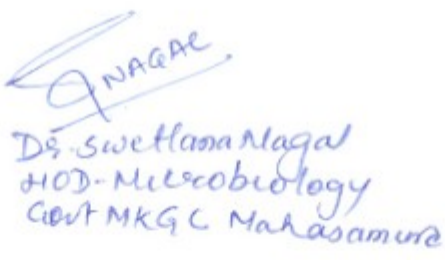 NAGAL
Dr. Swetlana Nagal
HOD-Microbiology
Govt MKGC Mahasamund